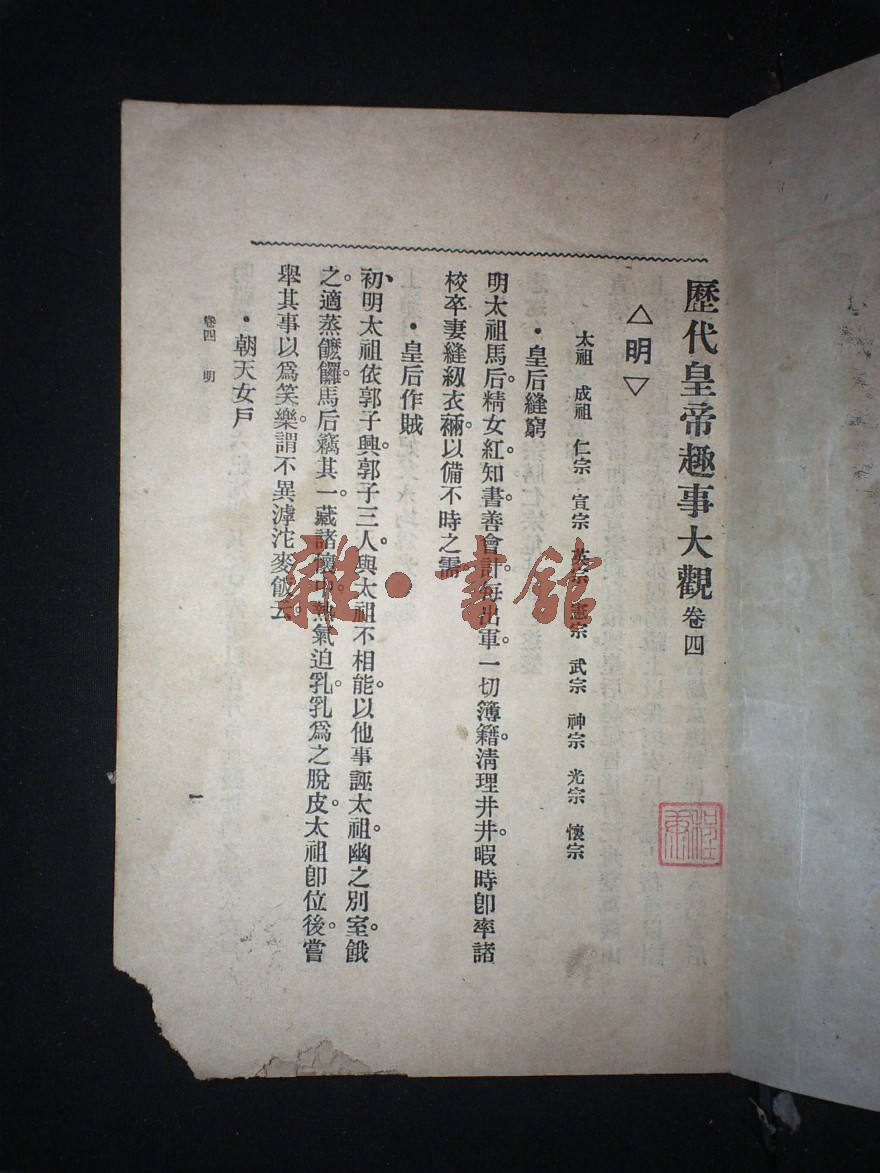 歷代皇帝趣事大觀 卷四
△明▽
太祖 成祖 仁宗 宣宗 英宗 憲宗 武宗 神宗 光宗 懷宗
•皇后縫窮
明太祖馬后。精女紅知書善會計每出軍。一切簿籍清理井井。暇時卽率諸
校卒妻縫紉衣裲。以備不時之需
•皇后作賊
初明太祖依郭子興郭子三人。與太祖不相能以他事誣太祖。幽之別室。餓
之。適蒸饝饠。馬后竊其一。藏諸懷中。熱氣迫乳乳爲之脫皮。太祖卽位後。嘗
舉其事以爲笑樂。謂不異滹沱麥飯云。
•朝天女戶
卷四 明
一
雜•書館